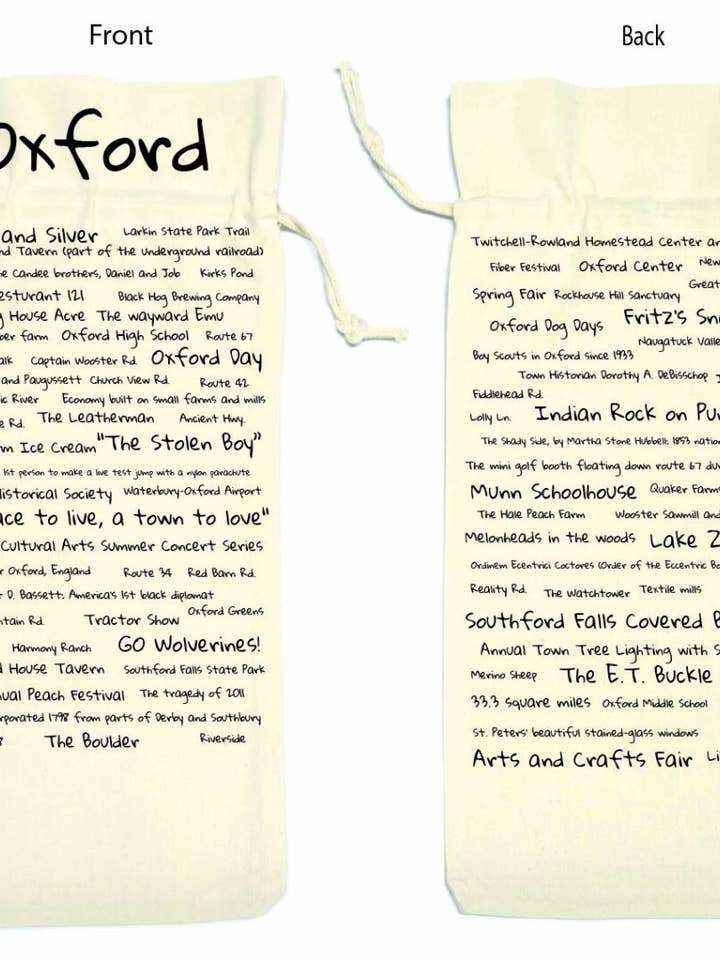 Front
Oxford
and Silver Larkin State Park Trail
nd Tavern (part of the underground railroad)
e Candee brothers, Daniel and Job Kirks Pond
esturant 121 Black Hog Brewing Company
g House Acre The wayward Emu
ber farm Oxford High School Route 67
alk Captain Wooster Rd. Oxford Day
and Paugussett Church View Rd. Route 42
ic River Economy built on small farms and mills
e Rd. The Leatherman Ancient Hwy.
m Ice Cream "The Stolen Boy"
1st person to make a live test jump with a nylon parachute
Historical Society Waterbury-Oxford Airport
ace to live, a town to love"
Cultural Arts Summer Concert Series
r Oxford, England Route 34 Red Barn Rd.
D. Bassett: America's 1st black diplomat
ntain Rd. Tractor Show Oxford Greens
Harmony Ranch GO Wolverines!
d House Tavern Southford Falls State Park
ual Peach Festival The tragedy of 2011
rporated 1798 from parts of Derby and Southbury
The Boulder Riverside
Back
Twitchell-Rowland Homestead Center an
Fiber Festival Oxford Center New
Great
Spring Fair Rockhouse Hill Sanctuary
Oxford Dog Days Fritz's Sn
Naugatuck Valle
Boy Scouts in Oxford since 1933
Town Historian Dorothy A. DeBisschop
Fiddlehead Rd.
Lolly Ln. Indian Rock on Pu
The Shady Side, by Martha Stone Hubbell: 1853 nation
The mini golf booth floating down route 67 du
Munn Schoolhouse Quaker Farms
The Hale Peach Farm Wooster Sawmill and
Melonheads in the woods Lake Z
Ordinem Ecentrici Coctores (Order of the Eccentric Bo
Reality Rd. The Watchtower Textile mills
Southford Falls Covered B
Annual Town Tree Lighting with S
Merino Sheep The E.T. Buckle
33.3 square miles Oxford Middle School
St. Peters' beautiful stained-glass windows
Arts and Crafts Fair Li